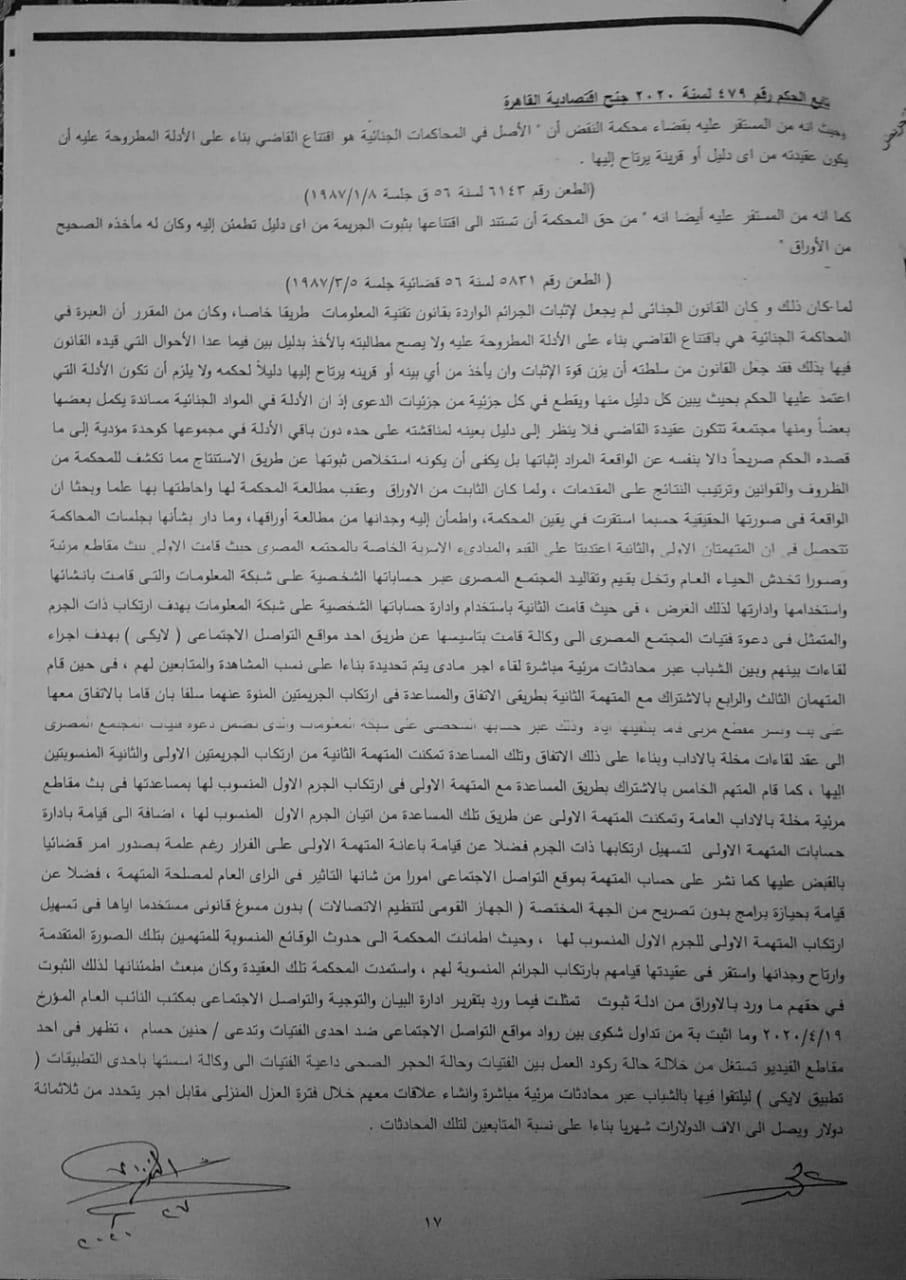 تابع الحكم رقم ٤٧٩ لسنة ٢٠٢٠ جنح اقتصادية القاهرة
وحيث انه من المستقر عليه بقضاء محكمة النقض أن " الأصل في المحاكمات الجنائية هو اقتناع القاضي بناء على الأدلة المطروحة عليه أن
يكون عقيدته من اى دليل أو قرينة يرتاح إليها .
(الطعن رقم ٦١٤٣ لسنة ٥٦ ق جلسة ١٩٨٧/١/٨)
كما انه من المستقر عليه أيضا انه " من حق المحكمة أن تستند الى اقتناعها بثبوت الجريمة من اى دليل تطمئن إليه وكان له مأخذه الصحيح
من الأوراق "
( الطعن رقم ٥٨٣١ لسنة ٥٦ قضائية جلسة ١٩٨٧/٣/٥)
لما كان ذلك و كان القانون الجنائى لم يجعل لإثبات الجرائم الواردة بقانون تقنية المعلومات طريقا خاصا، وكان من المقرر أن العبرة في
المحاكمة الجنائية هي باقتناع القاضي بناء على الأدلة المطروحة عليه ولا يصح مطالبته بالأخذ بدليل بين فيما عدا الأحوال التي قيده القانون
فيها بذلك فقد جعل القانون من سلطته أن يزن قوة الإثبات وان يأخذ من أي بينه أو قرينه يرتاح إليها دليلاً لحكمه ولا يلزم أن تكون الأدلة التي
اعتمد عليها الحكم بحيث يبين كل دليل منها ويقطع في كل جزئية من جزئيات الدعوى إذ ان الأدلة في المواد الجنائية مساندة يكمل بعضها
بعضاً ومنها مجتمعة تتكون عقيدة القاضي فلا ينظر إلى دليل بعينه لمناقشته على حده دون باقي الأدلة في مجموعها كوحدة مؤدية إلى ما
قصده الحكم صريحاً دالا بنفسه عن الواقعة المراد إثباتها بل يكفى أن يكونه استخلاص ثبوتها عن طريق الاستنتاج مما تكشف للمحكمة من
الظروف والقوانين وترتيب النتائج على المقدمات ، ولما كان الثابت من الاوراق وعقب مطالعة المحكمة لها واحاطتها بها علما وبحثا ان
الواقعة فى صورتها الحقيقية حسبما استقرت في يقين المحكمة، واطمأن إليه وجدانها من مطالعة أوراقها، وما دار بشأنها بجلسات المحاكمة
تتحصل فى ان المتهمتان الاولى والثانية اعتديتا على القيم والمبادىء الاسرية الخاصة بالمجتمع المصرى حيث قامت الاولى ببث مقاطع مرئية
وصورا تخدش الحياء العام وتخل بقيم وتقاليد المجتمع المصرى عبر حساباتها الشخصية على شبكة المعلومات والتى قامت بانشائها
واستخدامها وادارتها لذلك الغرض ، فى حيث قامت الثانية باستخدام وادارة حساباتها الشخصية على شبكة المعلومات بهدف ارتكاب ذات الجرم
والمتمثل فى دعوة فتيات المجتمع المصرى الى وكالة قامت بتاسيسها عن طريق احد مواقع التواصل الاجتماعى ( لايكى ) بهدف اجراء
لقاءات بينهم وبين الشباب عبر محادثات مرئية مباشرة لقاء اجر مادى يتم تحديدة بناءا على نسب المشاهدة والمتابعين لهم ، فى حين قام
المتهمان الثالث والرابع بالاشتراك مع المتهمة الثانية بطريقى الاتفاق والمساعدة فى ارتكاب الجريمتين المنوة عنهما سلفا بان قاما بالاتفاق معها
على بث ونشر مقطع مرئى قاما بتلقينها اياه وذلك عبر حسابها الشخصى على شبكة المعلومات والذى تضمن دعوة فتيات المجتمع المصرى
الى عقد لقاءات مخلة بالاداب وبناءا على ذلك الاتفاق وتلك المساعدة تمكنت المتهمة الثانية من ارتكاب الجريمتين الاولى والثانية المنسوبتين
اليها ، كما قام المتهم الخامس بالاشتراك بطريق المساعدة مع المتهمة الاولى فى ارتكاب الجرم الاول المنسوب لها بمساعدتها فى بث مقاطع
مرئية مخلة بالاداب العامة وتمكنت المتهمة الاولى عن طريق تلك المساعدة من اتيان الجرم الاول المنسوب لها ، اضافة الى قيامة بادارة
حسابات المتهمة الاولى لتسهيل ارتكابها ذات الجرم فضلا عن قيامة باعانة المتهمة الاولى على الفرار رغم علمة بصدور امر قضائيا
بالقبض عليها كما نشر على حساب المتهمة بموقع التواصل الاجتماعى امورا من شانها التاثير فى الراى العام لمصلحة المتهمة ، فضلا عن
قيامة بحيازة برامج بدون تصريح من الجهة المختصة ( الجهاز القومى لتنظيم الاتصالات ) بدون مسوغ قانونى مستخدما اياها فى تسهيل
ارتكاب المتهمة الاولى للجرم الاول المنسوب لها ، وحيث اطمانت المحكمة الى حدوث الوقائع المنسوبة للمتهمين بتلك الصورة المتقدمة
وارتاح وجدانها واستقر فى عقيدتها قيامهم بارتكاب الجرائم المنسوبة لهم ، واستمدت المحكمة تلك العقيدة وكان مبعث اطمئنانها لذلك الثبوت
في حقهم ما ورد بالاوراق من ادلة ثبوت تمثلت فيما ورد بتقرير ادارة البيان والتوجية والتواصل الاجتماعى بمكتب النائب العام المؤرخ
٢٠٢٠/٤/١٩ وما اثبت بة من تداول شكوى بين رواد مواقع التواصل الاجتماعى ضد احدى الفتيات وتدعى / حنين حسام ، تظهر فى احد
مقاطع الفيديو تستغل من خلالة حالة ركود العمل بين الفتيات وحالة الحجر الصحى داعية الفتيات الى وكالة اسستها باحدى التطبيقات (
تطبيق لايكى ) ليلتقوا فيها بالشباب عبر محادثات مرئية مباشرة وانشاء علاقات معهم خلال فترة العزل المنزلى مقابل اجر يتحدد من ثلاثمائة
دولار ويصل الى الاف الدولارات شهريا بناءا على نسبة المتابعين لتلك المحادثات .
١٧